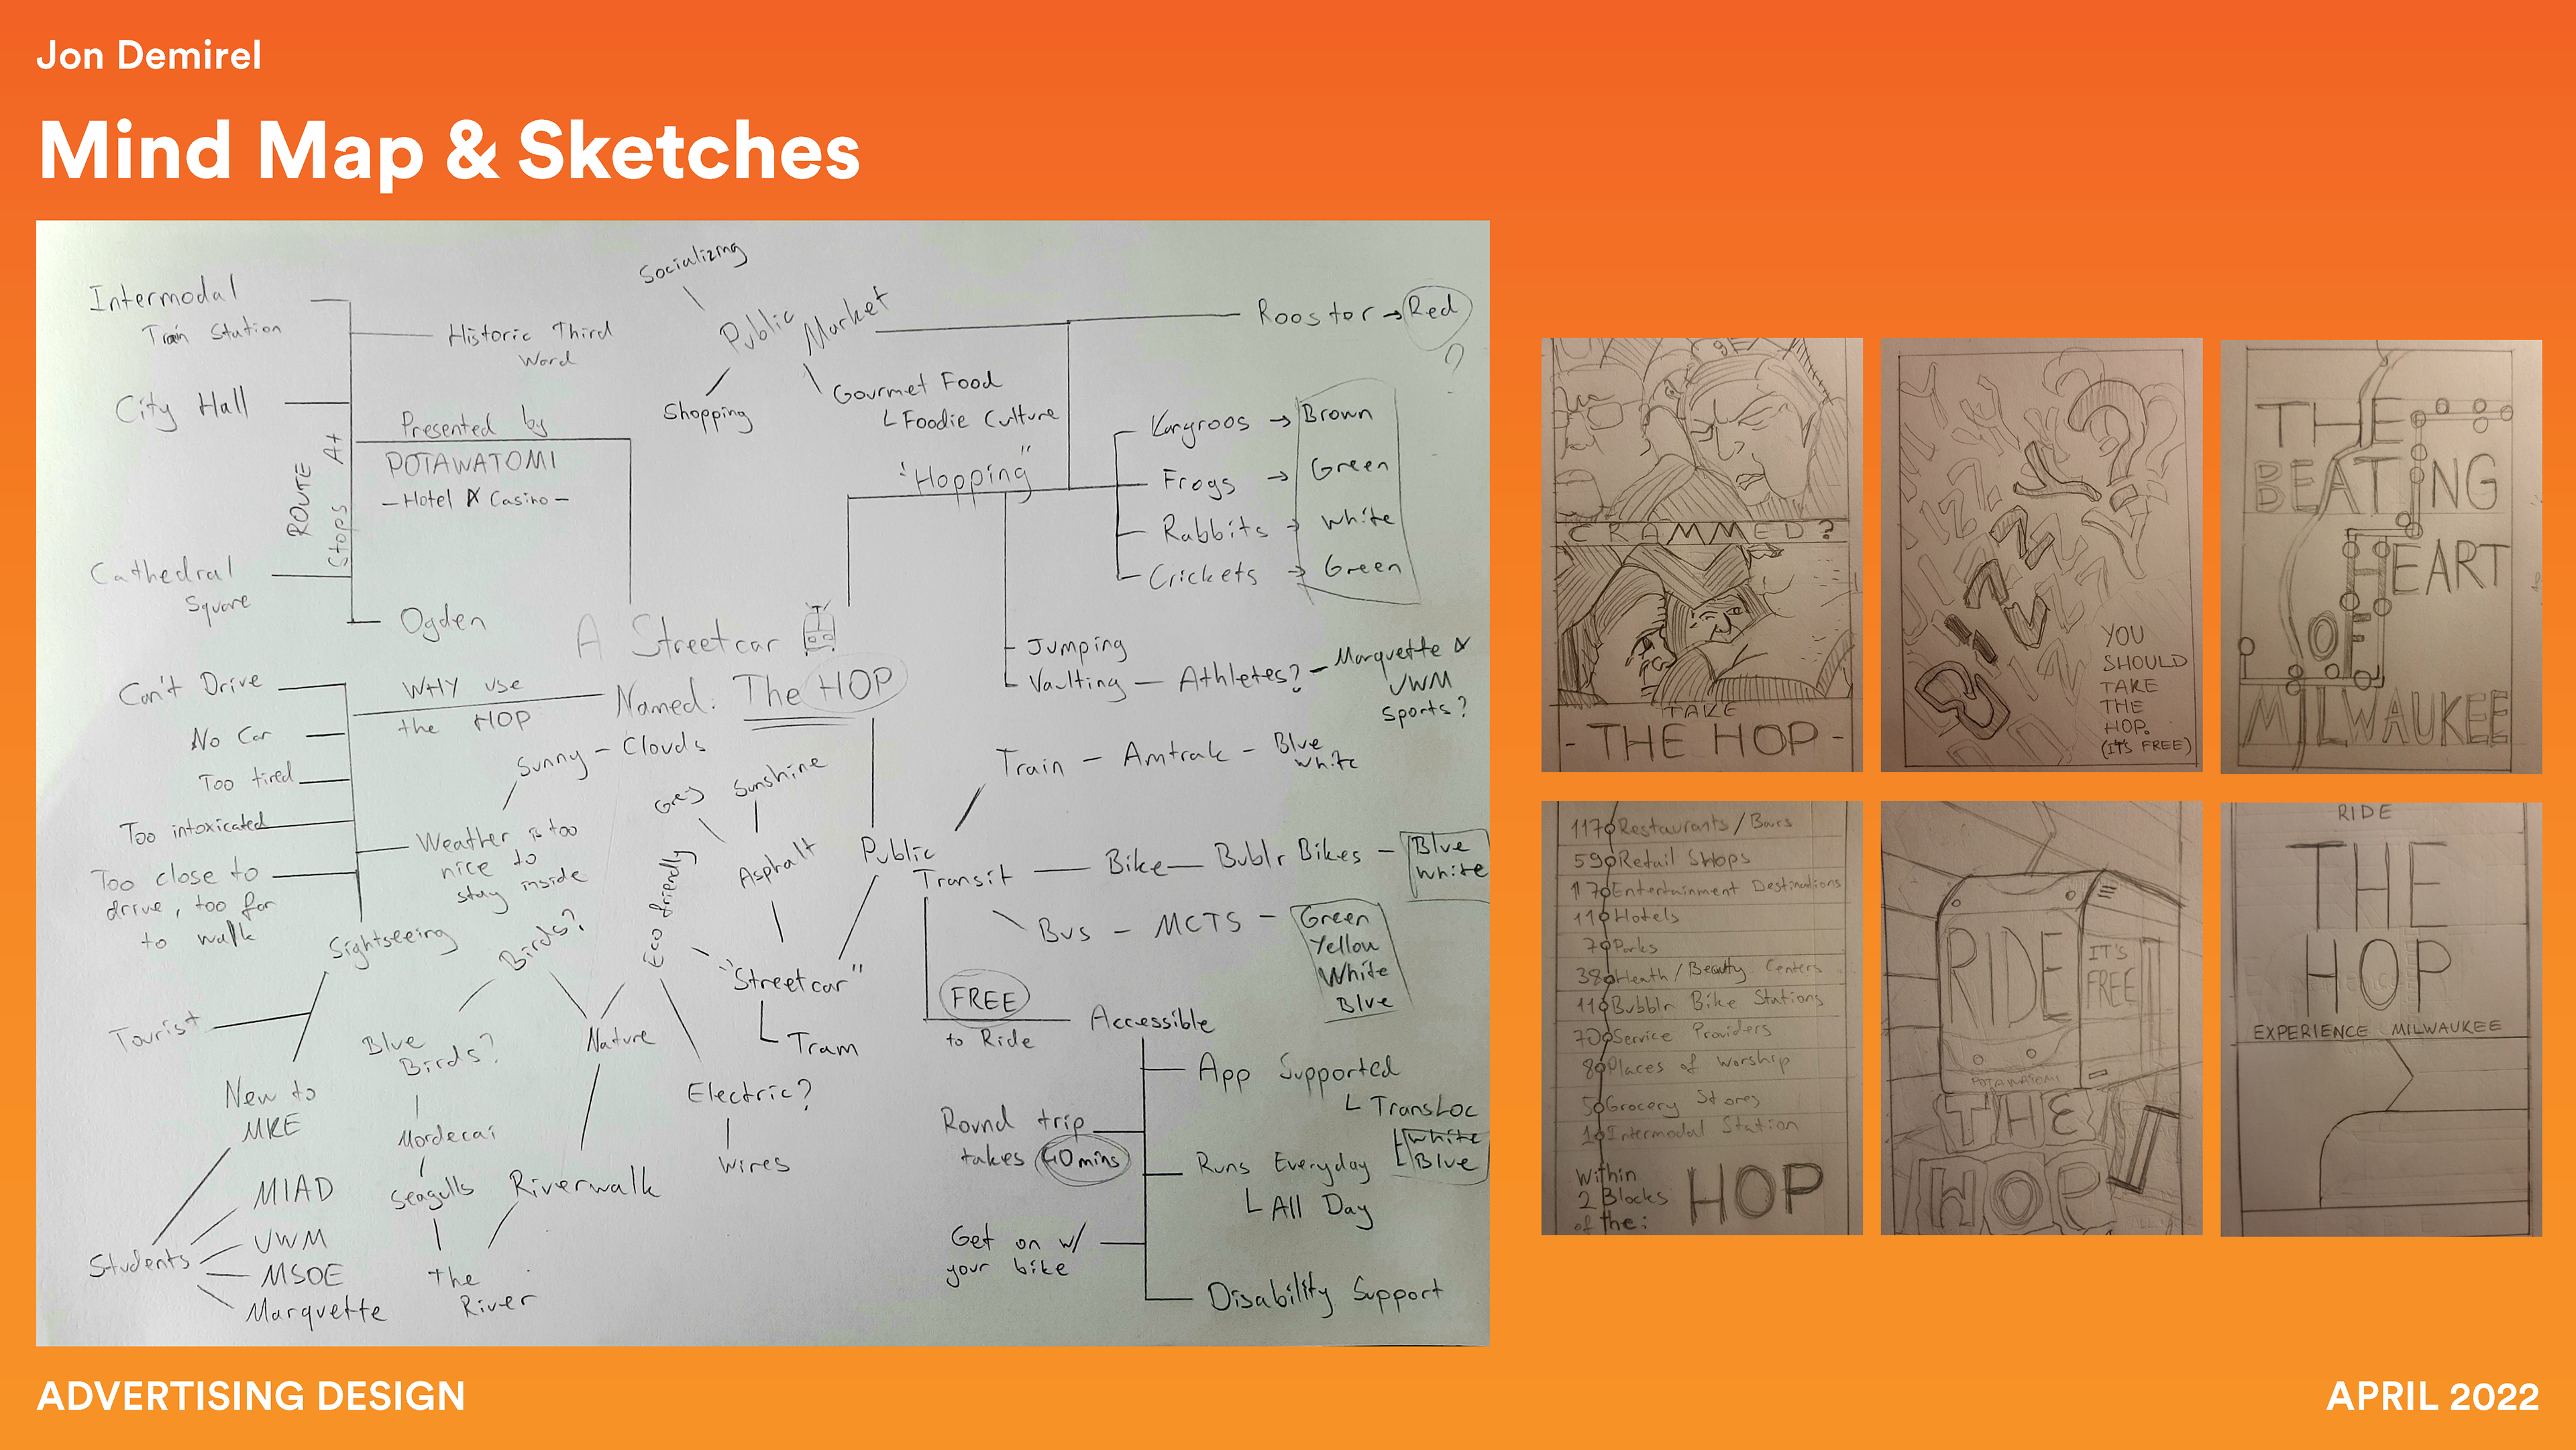 Jon Demirel
Mind Map & Sketches
Intermodal
Train Station
Historic Third
Word
City Hall
ROUTE
Stops At
Cathedral
Square
Ogden
Presented by
POTAWATOMI
- Hotel & Casino -
Socializing
Public Market
Shopping
Gourmet Food
Foodie Culture
Rooster → Red
?
"Hopping"
Kangroos → Brown
Frogs → Green
Rabbits → White
Crickets → Green
Jumping
Vaulting — Athletes? — Marquette &
UWM
Sports?
A Streetcar
Named: The HOP
WHY use
the HOP
Can't Drive
No Car
Too tired
Too intoxicated
Too close to
drive, too far
to walk
Weather is too
nice to
stay inside
Sunny - Clouds
Sightseeing
Tourist
New to
MKE
Students
MIAD
UWM
MSOE
Marquette
Birds?
Blue
Birds?
Mordecai
Seagulls
The
River
Nature
Riverwalk
Eco friendly
Electric?
Wires
Grey
Sunshine
Asphalt
"Streetcar"
Tram
Public
Transit
Train — Amtrak — Blue
White
Bike — Bublr Bikes — Blue
White
Bus — MCTS — Green
Yellow
White
Blue
FREE
to Ride
Accessible
App Supported
TransLoc
White
Blue
Round trip
takes 40mins
Runs Everyday
All Day
Get on w/
your bike
Disability Support
CRAMMED?
TAKE
- THE HOP -
YOU
SHOULD
TAKE
THE
HOP.
(IT'S FREE)
THE
BEATING
HEART
OF
MILWAUKEE
117 Restaurants/Bars
59 Retail Shops
17 Entertainment Destinations
11 Hotels
7 Parks
38 Heath/Beauty Centers
11 Bubblr Bike Stations
70 Service Providers
8 Places of Worship
5 Grocery Stores
1 Intermodal Station
Within
2 Blocks
of the:
HOP
RIDE
IT'S
FREE
POTAWATOMI
THE
HOP
RIDE
THE
HOP
EXPERIENCE MILWAUKEE
ADVERTISING DESIGN
APRIL 2022